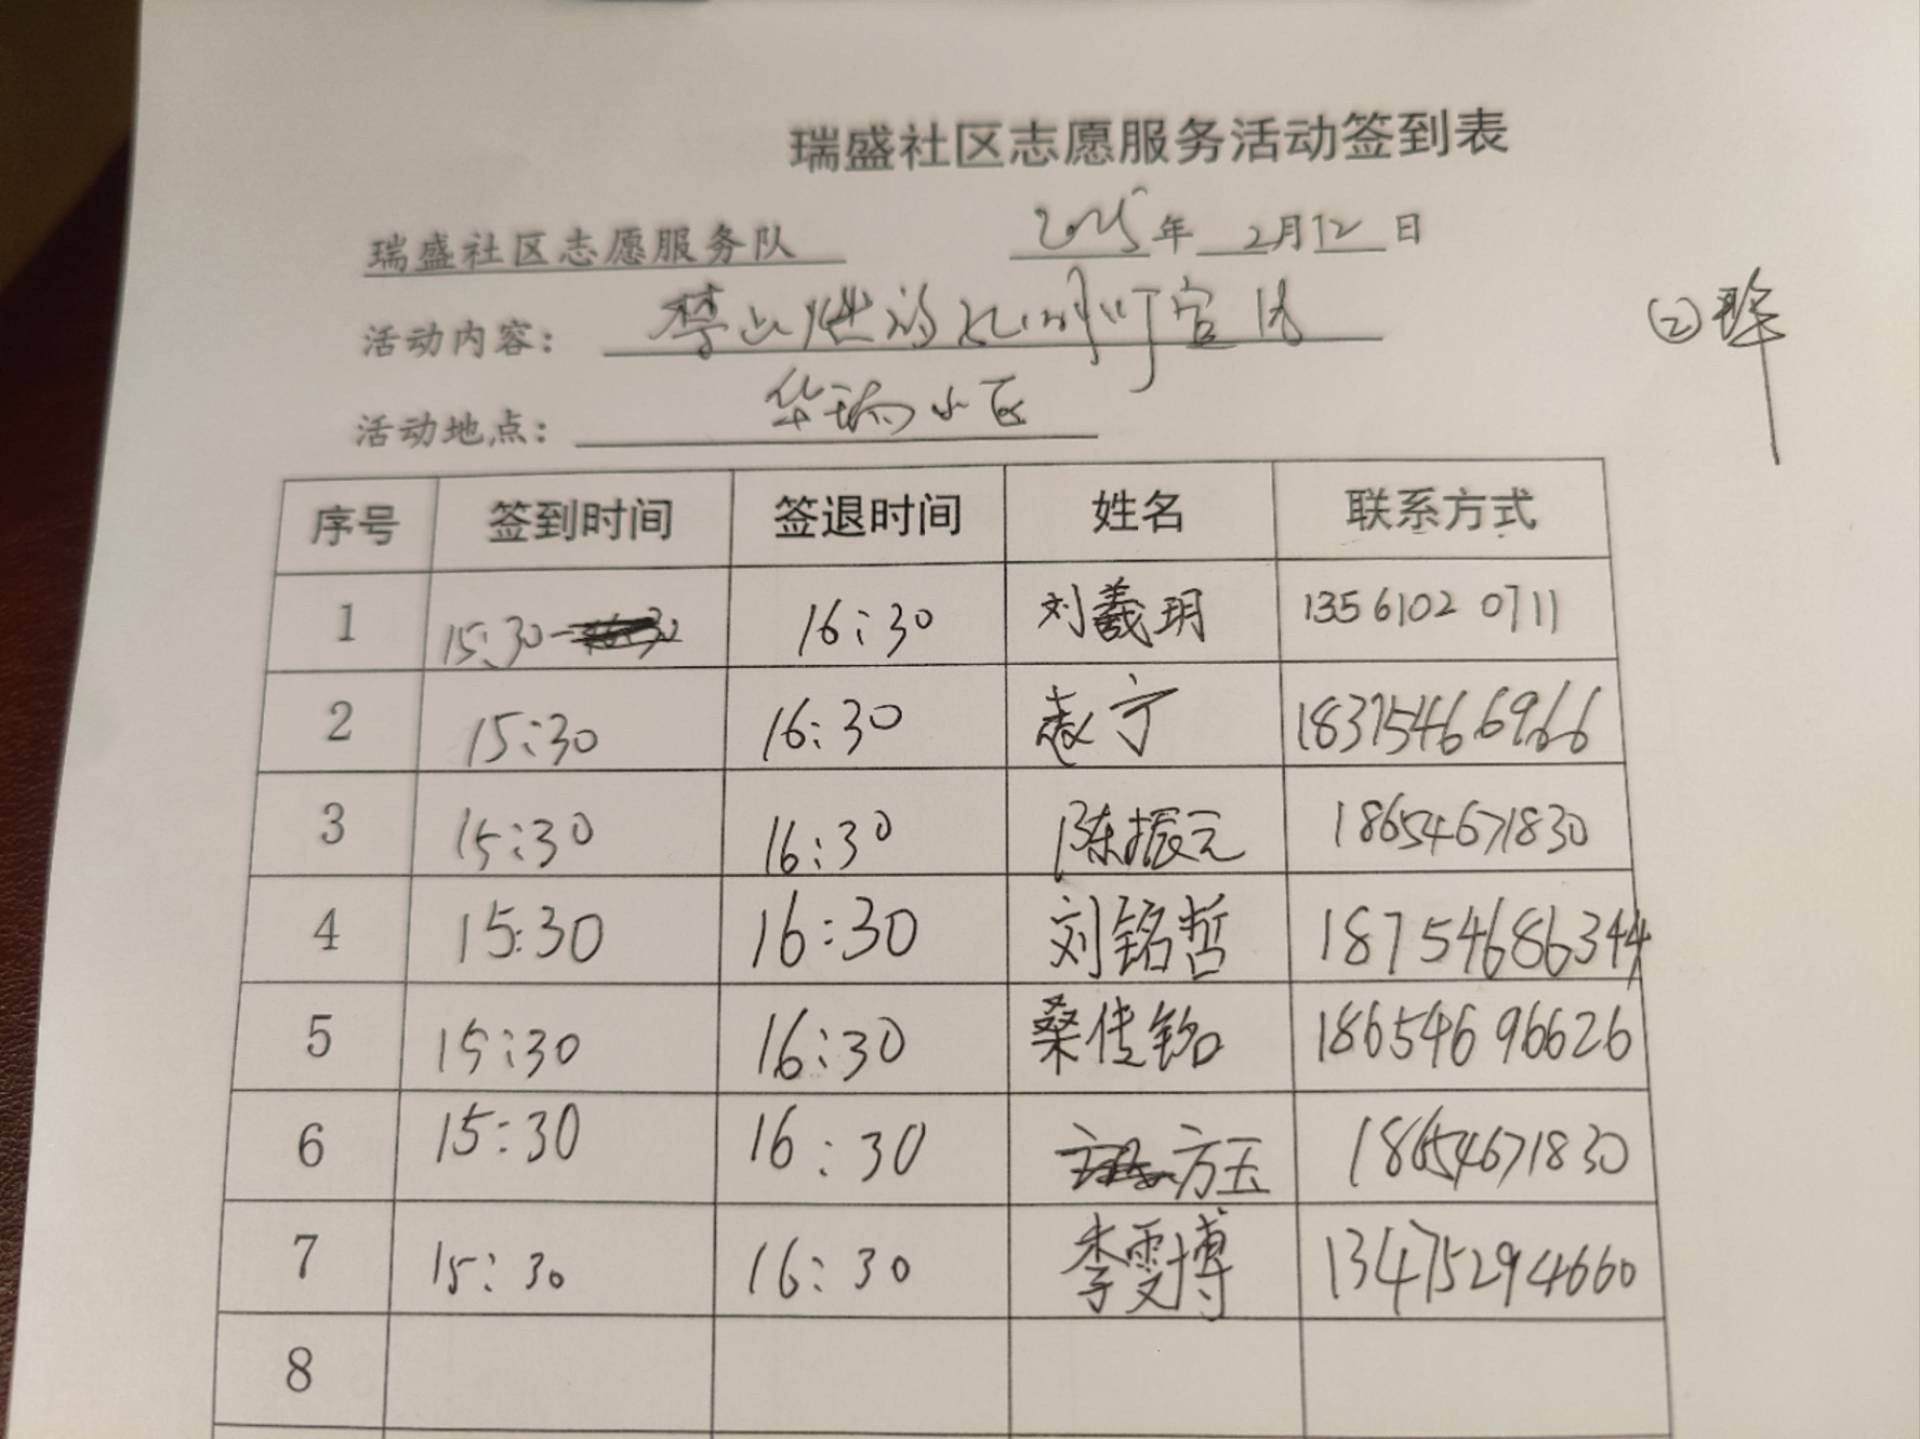 瑞盛社区志愿服务活动签到表
瑞盛社区志愿服务队 2025年 2月12日
活动内容： 禁止燃放烟花爆竹宣传
活动地点： 华瑞小区
序号 签到时间 签退时间 姓名 联系方式
1 15:30- 16:30 刘羲玥 13561020711
2 15:30 16:30 赵宁 18375466966
3 15:30 16:30 陈振元 18654671830
4 15:30 16:30 刘铭哲 18754686344
5 15:30 16:30 桑传铭 18654696626
6 15:30 16:30 方玉 18654671830
7 15:30 16:30 李雯博 13475294660
8